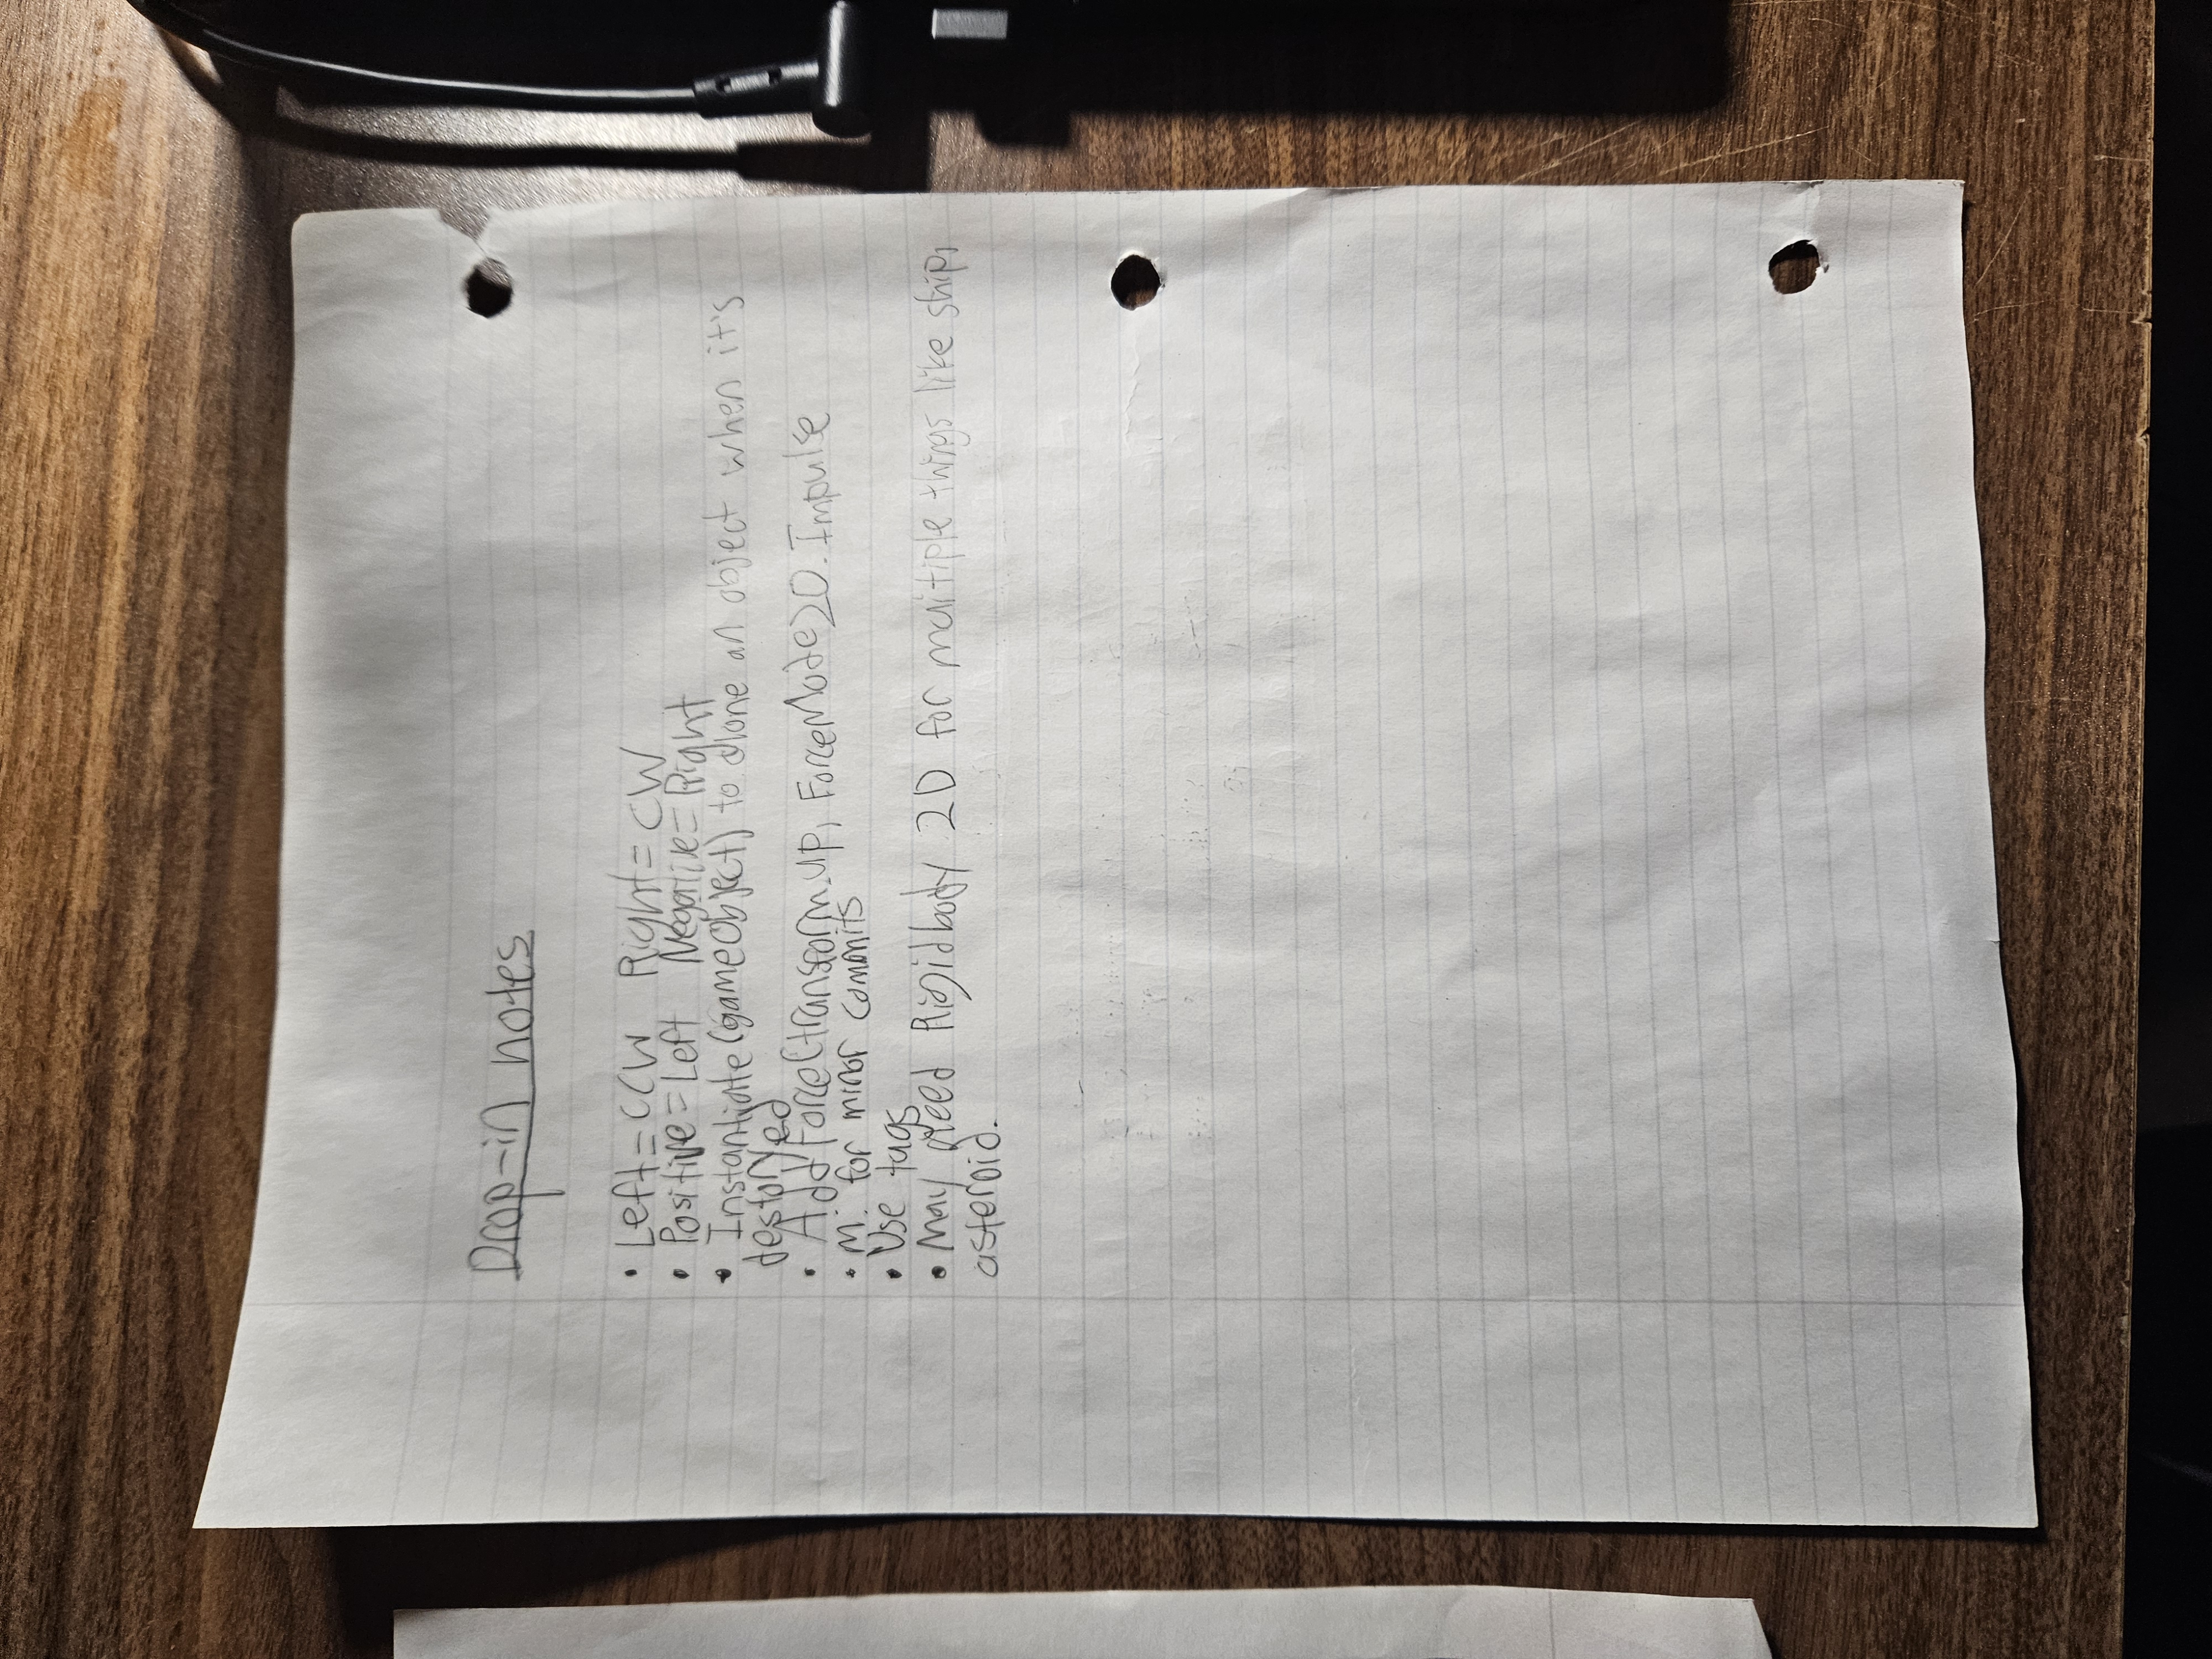 Drop-in notes
• Left=CCW Right=CW
• Positive=Left Negative=Right
• Instantiate(gameObject) to clone an object when it's
destoryed
• AddForce(transform.up, ForceMode2D.Impulse
• M: for minor commits
• Use tags
• May need Rigidbody 2D for multiple things like ship,
asteroid.